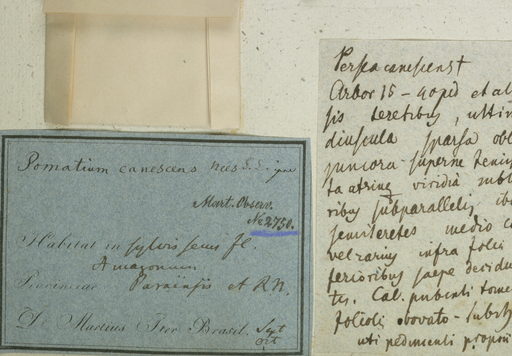 Pomatium canescens Nees
Mart. Observ.
No 2750.
Habitat in sylvis secus fl.
Amazonum
Provinciae Paraënsis et R.N.
D. Martius Iter Brasil.
Persea canescens
Arbor 15 - 40 ped et al
sis teretibus, ultim
diuscula sparsa obl
superne tenui
ta atring viridia subt
ribus subparallelis
semiteretes medio
vel rarius infra foli
ferioribus saepe decidu
tis. Cal. pubenti tome
folioli obovato-
uti pedimenti propor